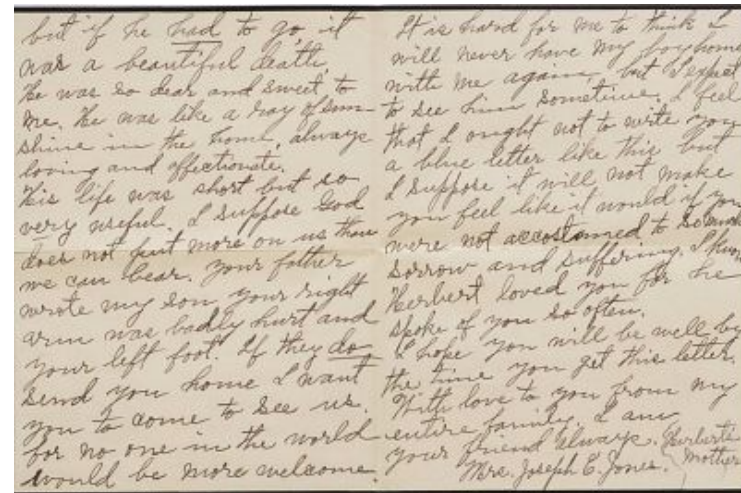 but if he had to go it
was a beautiful death.
He was so dear and sweet to
me. He was like a ray of sun-
shine in the home, always
loving and affectionate.
His life was short but so
very useful. I suppose God
does not put more on us than
we can bear. your father
wrote my son, your right
arm was badly hurt and
your left foot. If they do
send you home I want
you to come to see us.
for no one in the world
would be more welcome.
It is hard for me to think I
will never have my boy home
with me again, but I expect
to see him sometime. I feel
that I ought not to write you
a blue letter like this but
I suppose it will not make
you feel like it would if you
were not accostomed to so much
sorrow and suffering. I know
Herbert loved you for he
spoke of you so often.
I hope you will be well by
the time you get this letter.
With love to you from my
entire family, I am
your friend always.
Mrs. Joseph E. Jones.
(Herberts
Mother